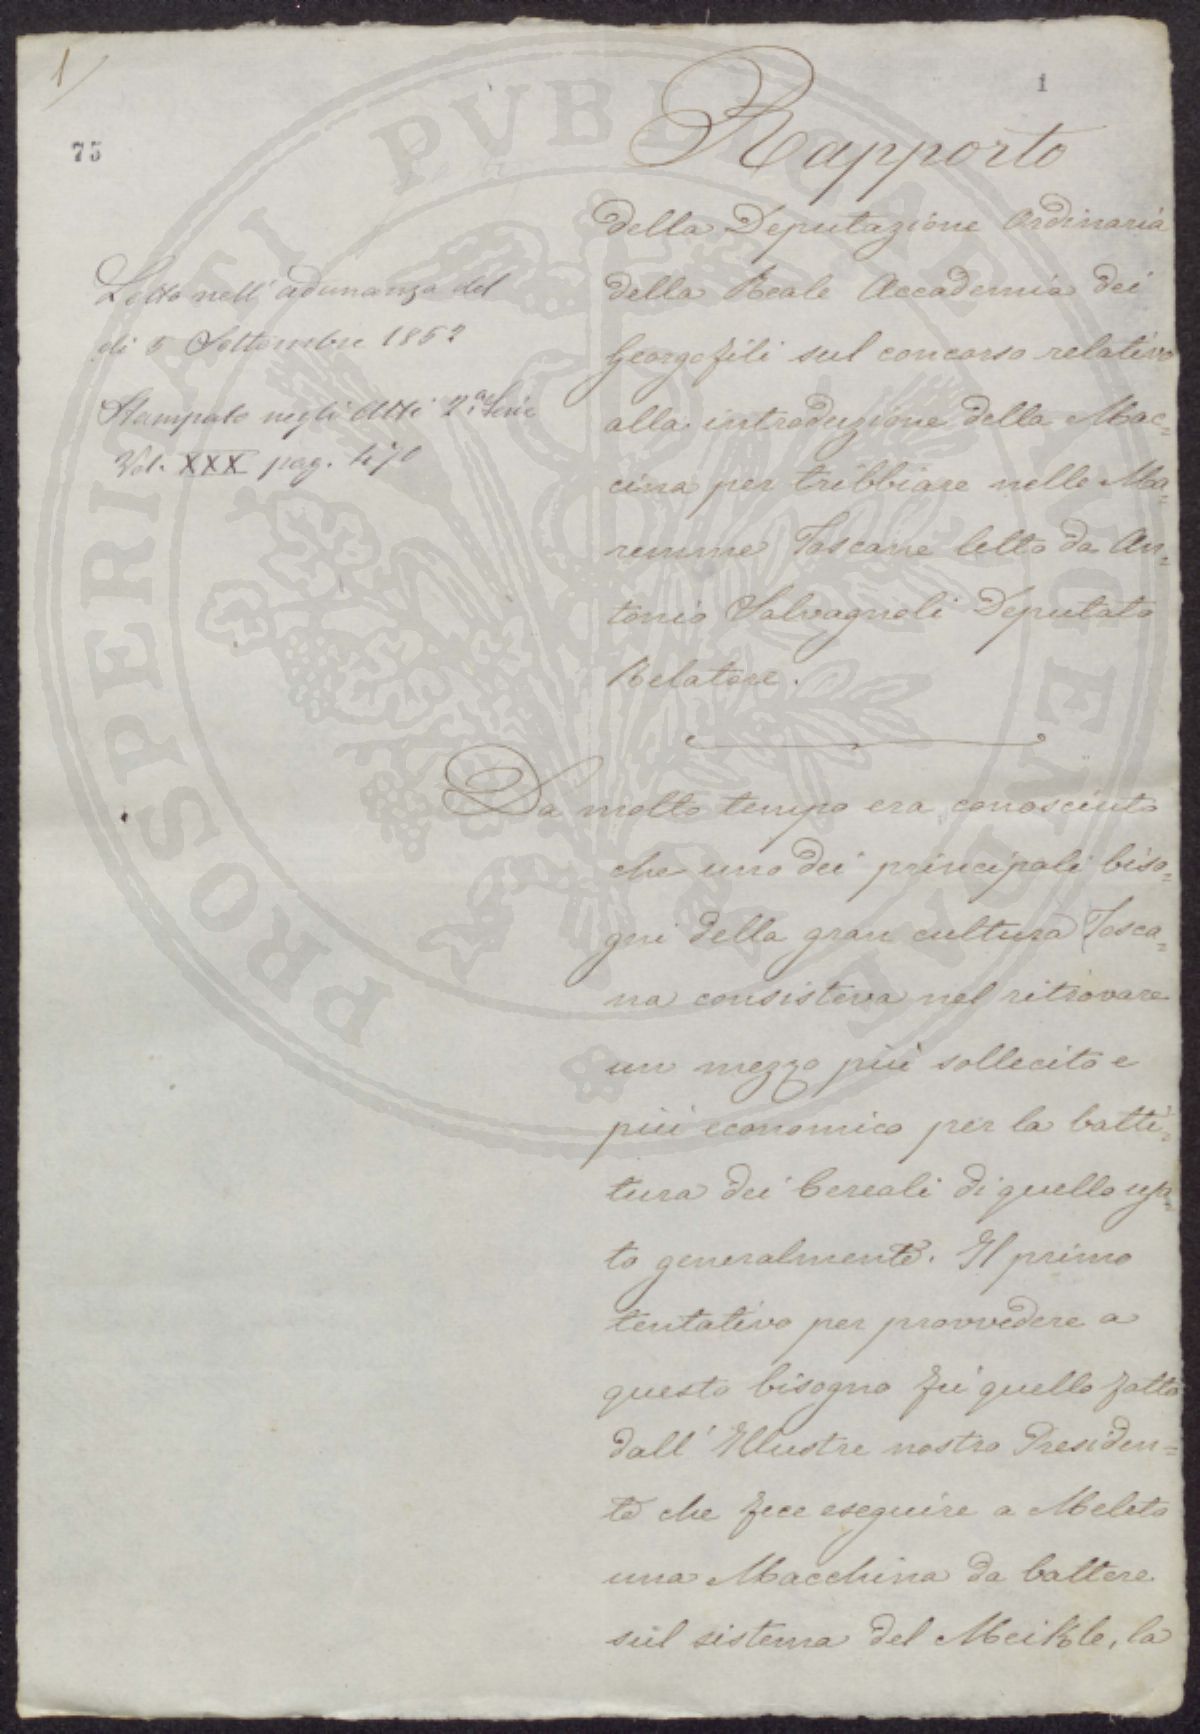 1
1
75
Rapporto
della Deputazione Ordinaria
della Reale Accademia dei
Georgofili sul concorso relativo
alla introduzione della Mac=
cina per tribbiare nelle Ma=
remme Toscane letto da An=
tonio Salvagnoli Deputato
Relatore.
Letto nell'adunanza del
di 5 Settembre 1852
Stampato negli Atti 2.a Serie
Vol. XXX pag. 470
Da molto tempo era conosciuto
che uno dei principali biso=
gni della gran cultura Tosca=
na consisteva nel ritrovare
un mezzo più sollecito e
più economico per la batti=
tura dei Cereali di quello usa=
to generalmente. Il primo
tentativo per provvedere a
questo bisogno fù quello fatto
dall'Illustre nostro Presiden=
te che fece eseguire a Meleto
una Macchina da battere
sul sistema del Meikle, la
PROSPERITATI PVBLICAE AVGENDAE